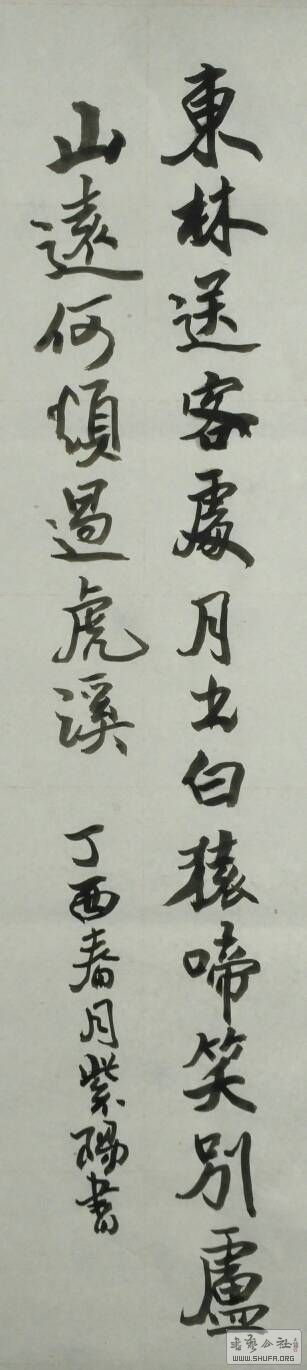 東林送客處月出白猿啼笑別盧
山遠何煩過虎溪
丁酉春月紫陽書
書法公社
WWW.SHUFA.ORG